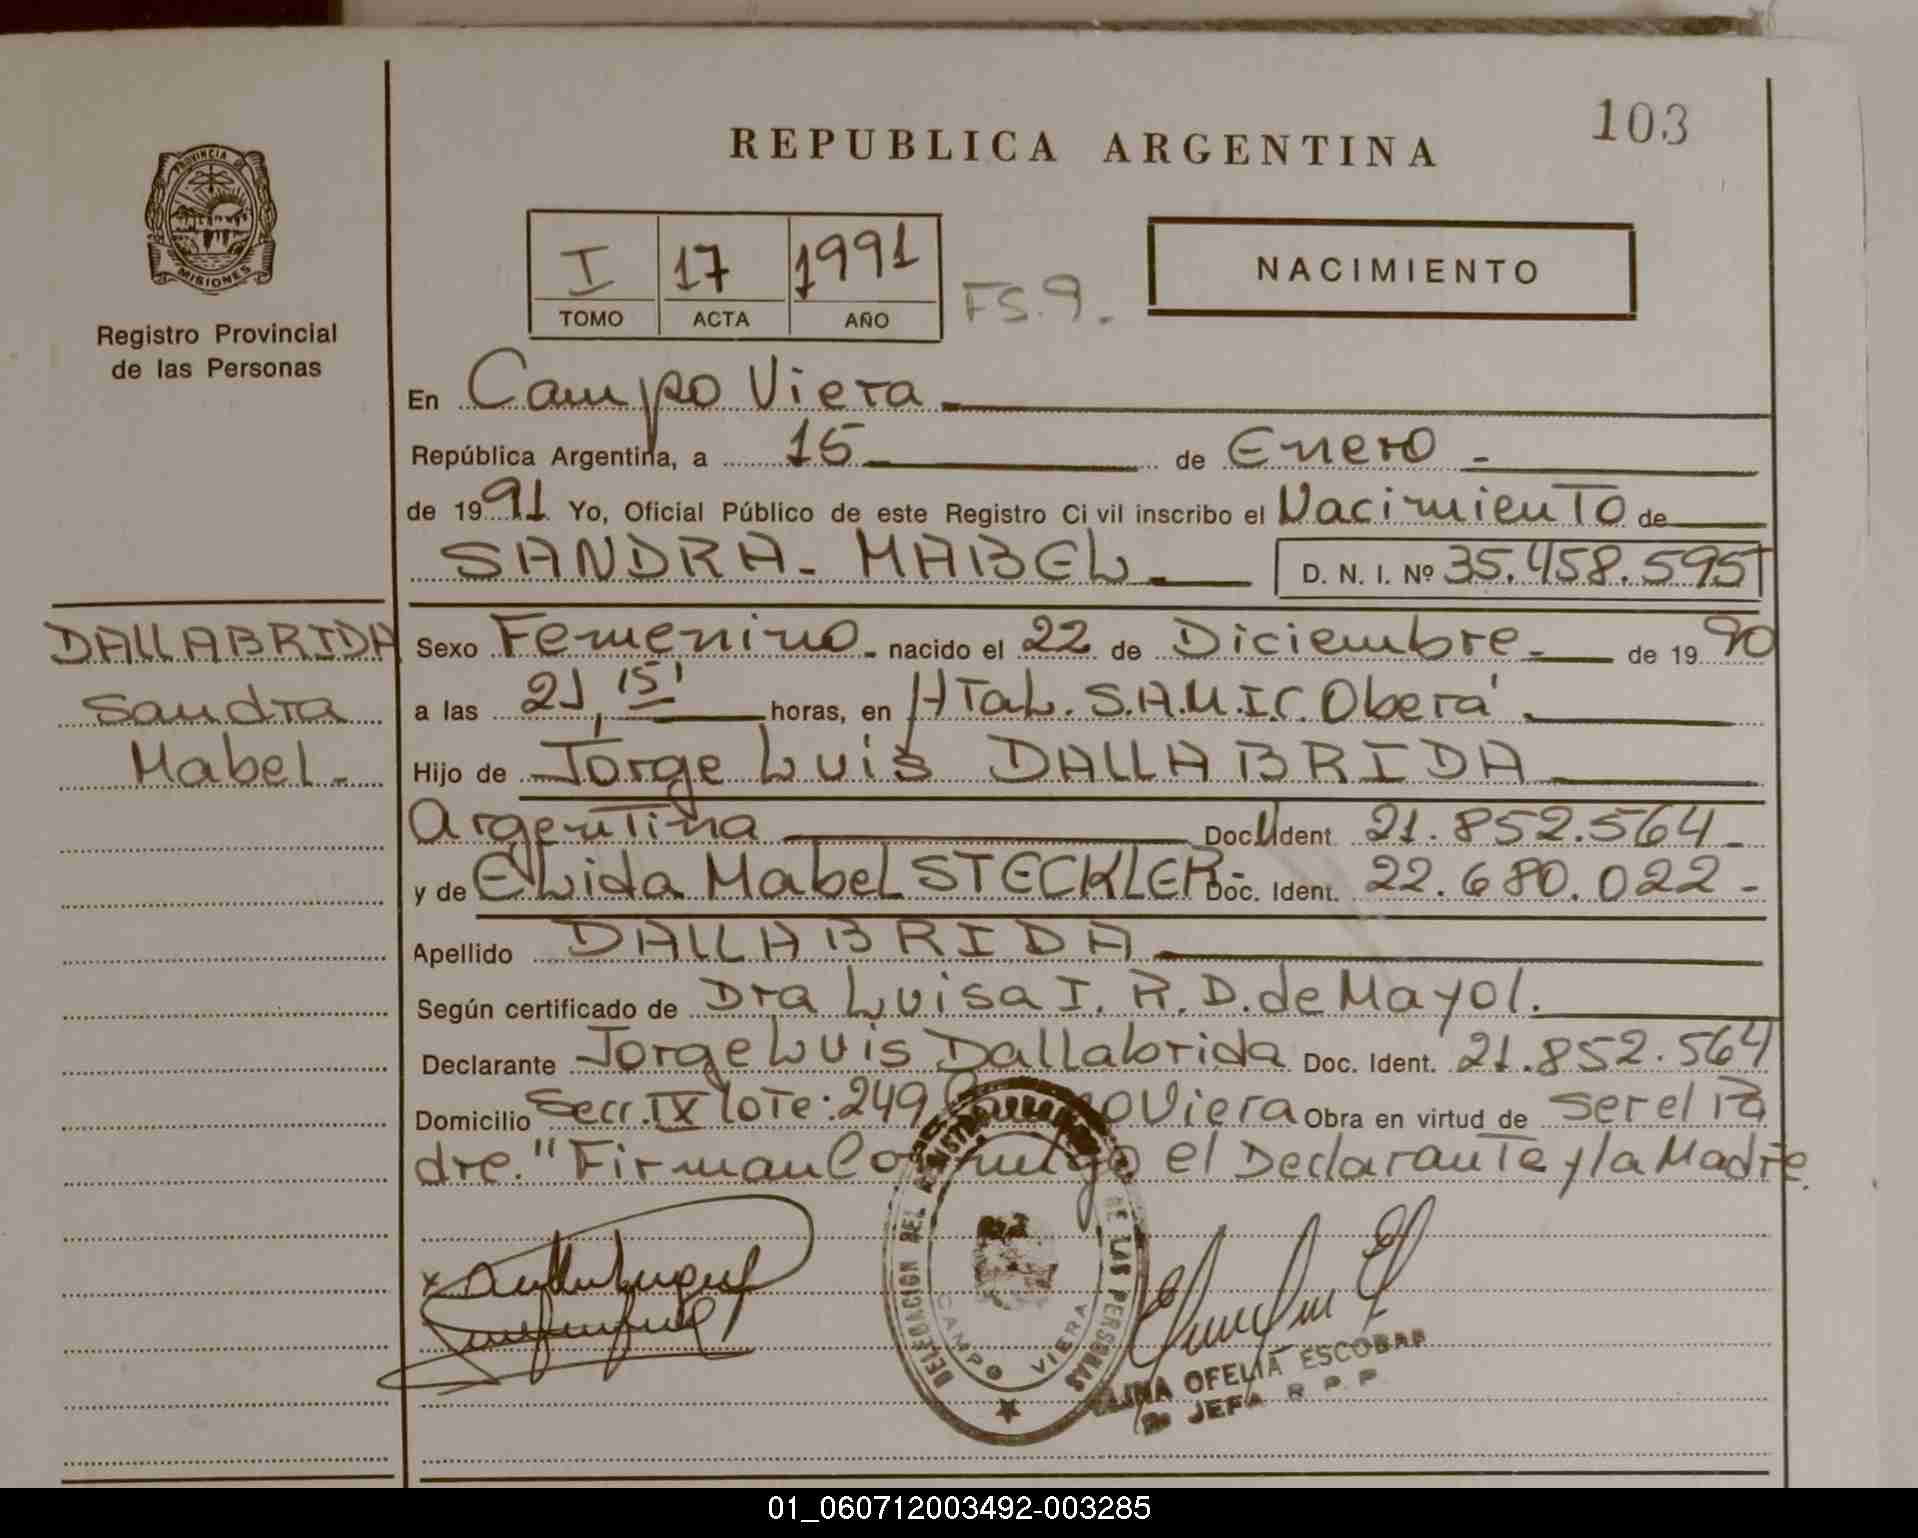 103
REPUBLICA ARGENTINA
PROVINCIA DE
MISIONES
Registro Provincial
de las Personas
I 17 1991
TOMO ACTA AÑO
FS.9.
NACIMIENTO
En Campo Viera
República Argentina, a 15 de Enero
de 1991 Yo, Oficial Público de este Registro Ci vil inscribo el Nacimiento de
SANDRA MABEL D. N. I. Nº 35.458.595
DALLABRIDA
Sandra
Mabel.
Sexo Femenino nacido el 22 de Diciembre de 1990
a las 21,15' horas, en HTal. S.A.M.I.C. Oberá
Hijo de Jorge Luis DALLABRIDA
Argentina Doc. Ident. 21.852.564
y de Elida Mabel STECKLER Doc. Ident. 22.680.022
Apellido DALLABRIDA
Según certificado de Dra Luisa I. R. D. de Mayol.
Declarante Jorge Luis Dallabrida Doc. Ident. 21.852.564
Domicilio Secc. IX lote: 249 Campo Viera Obra en virtud de ser el Pa
dre. "Firman Conmigo el Declarante y la Madre.
DELEGACION DEL REGISTRO DE LAS PERSONAS
CAMPO VIERA
OFELIA ESCOBAR
JEFA R.P.P.
01_060712003492-003285